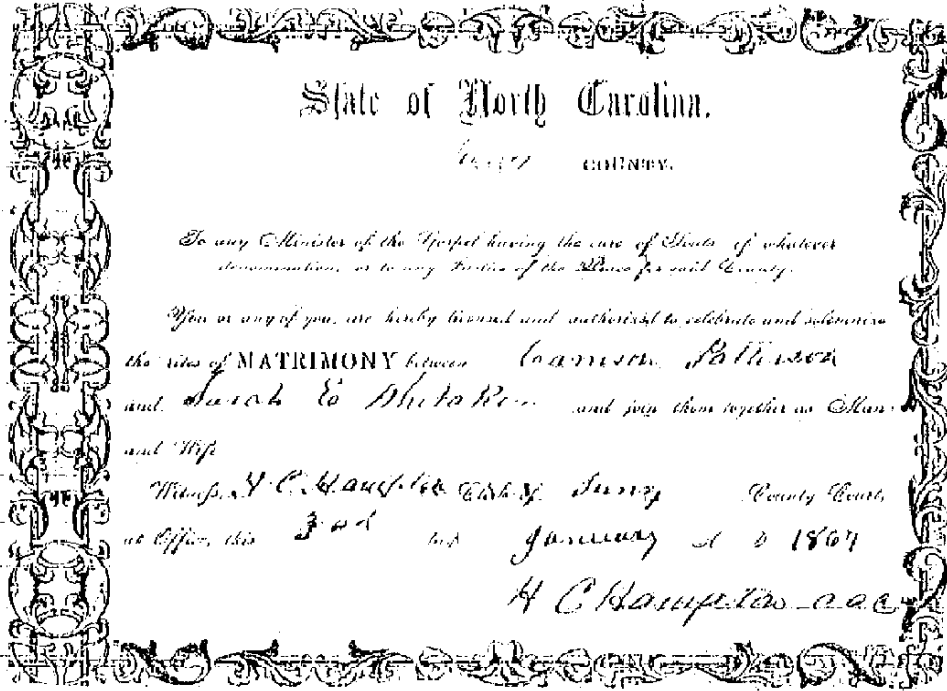 State of North Carolina.
COUNTY.
To any Minister of the Gospel having the care of Souls of whatever
denomination, or to any Justice of the Peace for said County.
You or any of you, are hereby licensed and authorized to celebrate and solemnize
the rites of MATRIMONY between Patterson
and Sarah and join them together as Man
and Wife
Witness, H C Hampton Clerk of Surry County Court,
at Office, this 3rd day January A D 1867
H C Hampton